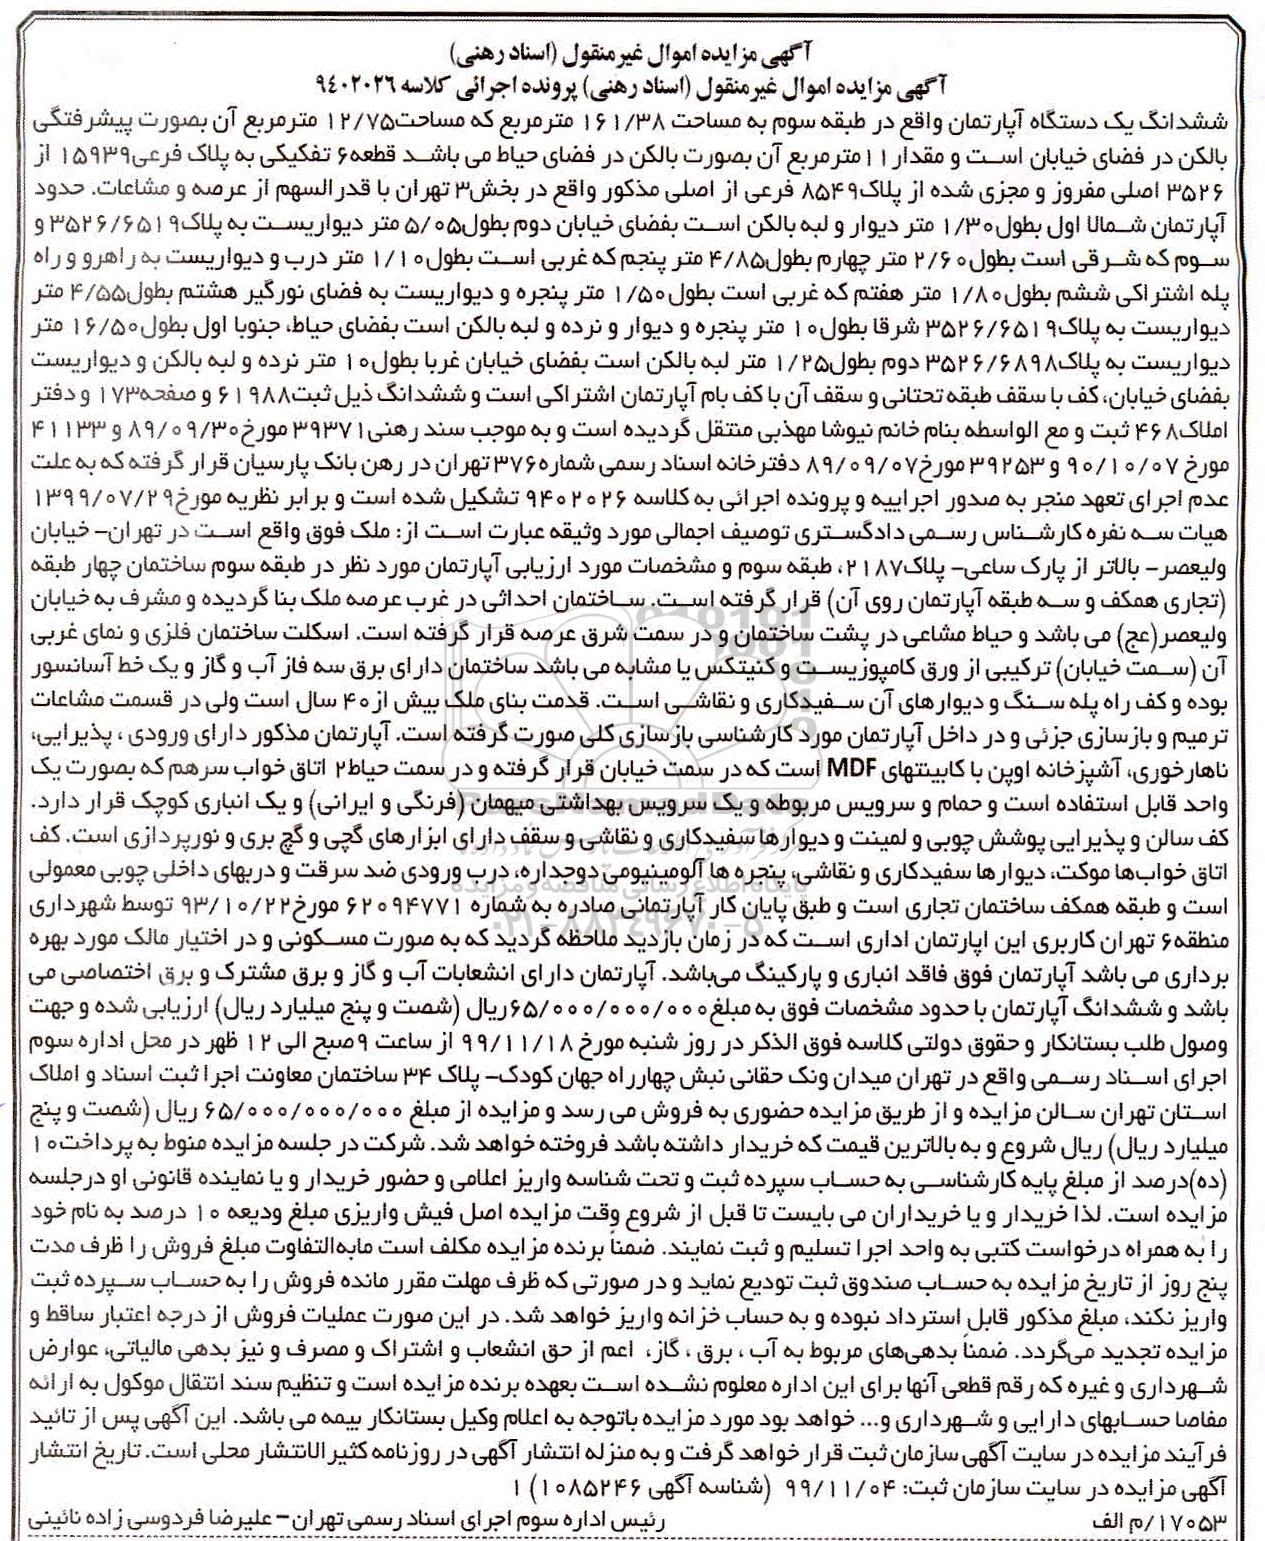 آگهی مزایده اموال غیرمنقول (اسناد رهنی)
آگهی مزایده اموال غیرمنقول (اسناد رهنی) پرونده اجرائی کلاسه ۹۴۰۲۰۲۶
ششدانگ یک دستگاه آپارتمان واقع در طبقه سوم به مساحت ۱۶۱/۳۸ مترمربع که مساحت۱۲/۷۵ مترمربع آن بصورت پیشرفتگی
بالکن در فضای خیابان است و مقدار۱۱مترمربع آن بصورت بالکن در فضای حیاط می باشد قطعه۶ تفکیکی به پلاک فرعی۱۵۹۳۹ از
۳۵۲۶ اصلی مفروز و مجزی شده از پلاک۸۵۴۹ فرعی از اصلی مذکور واقع در بخش۳ تهران با قدرالسهم از عرصه و مشاعات. حدود
آپارتمان شمالا اول بطول۱/۳۰ متر دیوار و لبه بالکن است بفضای خیابان دوم بطول۵/۰۵ متر دیواریست به پلاک۳۵۲۶/۶۵۱۹ و
سوم که شرقی است بطول۲/۶۰ متر چهارم بطول۴/۸۵ متر پنجم که غربی است بطول۱/۱۰ متر درب و دیواریست به راهرو و راه
پله اشتراکی ششم بطول۱/۸۰ متر هفتم که غربی است بطول۱/۵۰ متر پنجره و دیواریست به فضای نورگیر هشتم بطول۴/۵۵ متر
دیواریست به پلاک۳۵۲۶/۶۵۱۹ شرقا بطول۱۰ متر پنجره و دیوار و نرده و لبه بالکن است بفضای حیاط، جنوبا اول بطول۱۶/۵۰ متر
دیواریست به پلاک۳۵۲۶/۶۸۹۸ دوم بطول۱/۲۵ متر لبه بالکن است بفضای خیابان غربا بطول۱۰ متر نرده و لبه بالکن و دیواریست
بفضای خیابان، کف با سقف طبقه تحتانی و سقف آن با کف بام آپارتمان اشتراکی است و ششدانگ ذیل ثبت۶۱۹۸۸ و صفحه۱۷۳ و دفتر
املاک۴۶۸ ثبت و مع الواسطه بنام خانم نیوشا مهذبی منتقل گردیده است و به موجب سند رهنی۳۹۳۷۱ مورخ۸۹/۰۹/۳۰ و ۴۱۱۳۳
مورخ ۹۰/۱۰/۰۷ و ۳۹۲۵۳ مورخ۸۹/۰۹/۰۷ دفترخانه اسناد رسمی شماره۳۷۶ تهران در رهن بانک پارسیان قرار گرفته که به علت
عدم اجرای تعهد منجر به صدور اجراییه و پرونده اجرائی به کلاسه ۹۴۰۲۰۲۶ تشکیل شده است و برابر نظریه مورخ۱۳۹۹/۰۷/۲۹
هیات سه نفره کارشناس رسمی دادگستری توصیف اجمالی مورد وثیقه عبارت است از: ملک فوق واقع است در تهران- خیابان
ولیعصر- بالاتر از پارک ساعی- پلاک۲۱۸۷، طبقه سوم و مشخصات مورد ارزیابی آپارتمان مورد نظر در طبقه سوم ساختمان چهار طبقه
(تجاری همکف و سه طبقه آپارتمان روی آن) قرار گرفته است. ساختمان احداثی در غرب عرصه ملک بنا گردیده و مشرف به خیابان
ولیعصر(عج) می باشد و حیاط مشاعی در پشت ساختمان و در سمت شرق عرصه قرار گرفته است. اسکلت ساختمان فلزی و نمای غربی
آن (سمت خیابان) ترکیبی از ورق کامپوزیست و کنیتکس یا مشابه می باشد ساختمان دارای برق سه فاز آب و گاز و یک خط آسانسور
بوده و کف راه پله سنگ و دیوارهای آن سفیدکاری و نقاشی است. قدمت بنای ملک بیش از۴۰ سال است ولی در قسمت مشاعات
ترمیم و بازسازی جزئی و در داخل آپارتمان مورد کارشناسی بازسازی کلی صورت گرفته است. آپارتمان مذکور دارای ورودی ، پذیرایی،
ناهارخوری، آشپزخانه اوپن با کابینتهای MDF است که در سمت خیابان قرار گرفته و در سمت حیاط۲ اتاق خواب سرهم که بصورت یک
واحد قابل استفاده است و حمام و سرویس مربوطه و یک سرویس بهداشتی میهمان (فرنگی و ایرانی) و یک انباری کوچک قرار دارد.
کف سالن و پذیرایی پوشش چوبی و لمینت و دیوارها سفیدکاری و نقاشی و سقف دارای ابزارهای گچی و گچ بری و نورپردازی است. کف
اتاق خواب‌ها موکت، دیوارها سفیدکاری و نقاشی، پنجره ها آلومینیومی دوجداره، درب ورودی ضد سرقت و دربهای داخلی چوبی معمولی
است و طبقه همکف ساختمان تجاری است و طبق پایان کار آپارتمانی صادره به شماره ۶۲۰۹۴۷۷۱ مورخ۹۳/۱۰/۲۲ توسط شهرداری
منطقه۶ تهران کاربری این اپارتمان اداری است که در زمان بازدید ملاحظه گردید که به صورت مسکونی و در اختیار مالک مورد بهره
برداری می باشد آپارتمان فوق فاقد انباری و پارکینگ می‌باشد. آپارتمان دارای انشعابات آب و گاز و برق مشترک و برق اختصاصی می
باشد و ششدانگ آپارتمان با حدود مشخصات فوق به مبلغ۶۵/۰۰۰/۰۰۰/۰۰۰ریال (شصت و پنج میلیارد ریال) ارزیابی شده و جهت
وصول طلب بستانکار و حقوق دولتی کلاسه فوق الذکر در روز شنبه مورخ ۹۹/۱۱/۱۸ از ساعت ۹صبح الی ۱۲ ظهر در محل اداره سوم
اجرای اسناد رسمی واقع در تهران میدان ونک حقانی نبش چهارراه جهان کودک- پلاک ۳۴ ساختمان معاونت اجرا ثبت اسناد و املاک
استان تهران سالن مزایده و از طریق مزایده حضوری به فروش می رسد و مزایده از مبلغ ۶۵/۰۰۰/۰۰۰/۰۰۰ ریال (شصت و پنج
میلیارد ریال) ریال شروع و به بالاترین قیمت که خریدار داشته باشد فروخته خواهد شد. شرکت در جلسه مزایده منوط به پرداخت۱۰
(ده)درصد از مبلغ پایه کارشناسی به حساب سپرده ثبت و تحت شناسه واریز اعلامی و حضور خریدار و یا نماینده قانونی او درجلسه
مزایده است. لذا خریدار و یا خریداران می بایست تا قبل از شروع وقت مزایده اصل فیش واریزی مبلغ ودیعه ۱۰ درصد به نام خود
را به همراه درخواست کتبی به واحد اجرا تسلیم و ثبت نمایند. ضمناً برنده مزایده مکلف است مابه‌التفاوت مبلغ فروش را ظرف مدت
پنج روز از تاریخ مزایده به حساب صندوق ثبت تودیع نماید و در صورتی که ظرف مهلت مقرر مانده فروش را به حساب سپرده ثبت
واریز نکند، مبلغ مذکور قابل استرداد نبوده و به حساب خزانه واریز خواهد شد. در این صورت عملیات فروش از درجه اعتبار ساقط و
مزایده تجدید می‌گردد. ضمناً بدهی‌های مربوط به آب ، برق ، گاز، اعم از حق انشعاب و اشتراک و مصرف و نیز بدهی مالیاتی، عوارض
شهرداری و غیره که رقم قطعی آنها برای این اداره معلوم نشده است بعهده برنده مزایده است و تنظیم سند انتقال موکول به ارائه
مفاصا حسابهای دارایی و شهرداری و... خواهد بود مورد مزایده باتوجه به اعلام وکیل بستانکار بیمه می باشد. این آگهی پس از تائید
فرآیند مزایده در سایت آگهی سازمان ثبت قرار خواهد گرفت و به منزله انتشار آگهی در روزنامه کثیرالانتشار محلی است. تاریخ انتشار
آگهی مزایده در سایت سازمان ثبت: ۹۹/۱۱/۰۴ (شناسه آگهی ۱۰۸۵۲۴۶) ۱
۱۷۰۵۳/م الف رئیس اداره سوم اجرای اسناد رسمی تهران- علیرضا فردوسی زاده نائینی
پایگاه اطلاع رسانی مناقصه و مزایده
۰۲۱-۸۸۳۴۹۶۷۰-۵